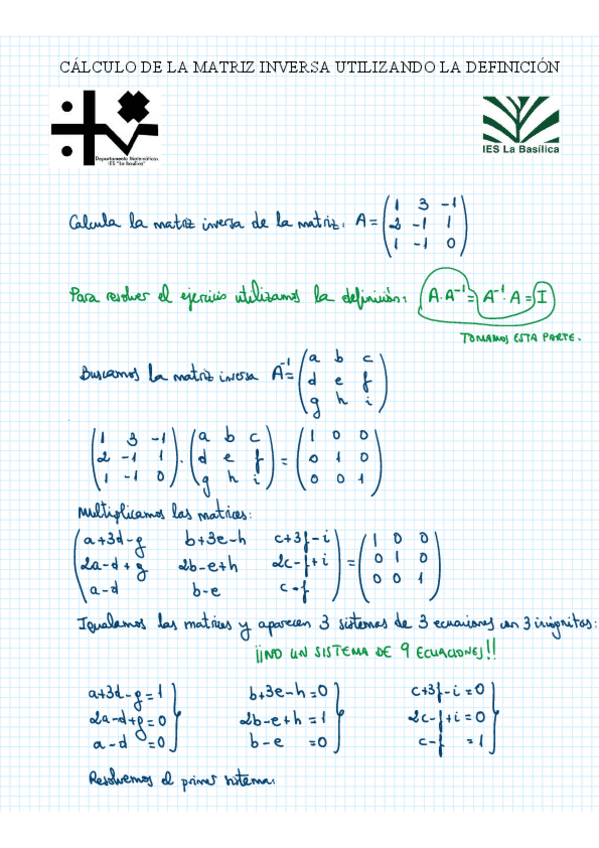 CÁLCULO DE LA MATRIZ INVERSA UTILIZANDO LA DEFINICIÓN
Departamento Matemáticas
IES "La Basílica"
IES La Basílica
Calcula la matriz inversa de la matriz: A = (1 3 -1
2 -1 1
1 -1 0)
Para resolver el ejercicio utilizamos la definición: (A·A⁻¹ = A⁻¹·A = I
TOMAMOS ESTA PARTE.
Buscamos la matriz inversa A⁻¹ = (a b c
d e f
g h i)
(1 3 -1
2 -1 1
1 -1 0) · (a b c
d e f
g h i) = (1 0 0
0 1 0
0 0 1)
Multiplicamos las matrices:
(a+3d-g b+3e-h c+3f-i
2a-d+g 2b-e+h 2c-f+i
a-d b-e c-f) = (1 0 0
0 1 0
0 0 1)
Igualamos las matrices y aparecen 3 sistemas de 3 ecuaciones con 3 incógnitas:
¡¡NO UN SISTEMA DE 9 ECUACIONES!!
a+3d-g=1 b+3e-h=0 c+3f-i=0
2a-d+g=0 2b-e+h=1 2c-f+i=0
a-d=0 b-e=0 c-f=1
Resolvemos el primer sistema: